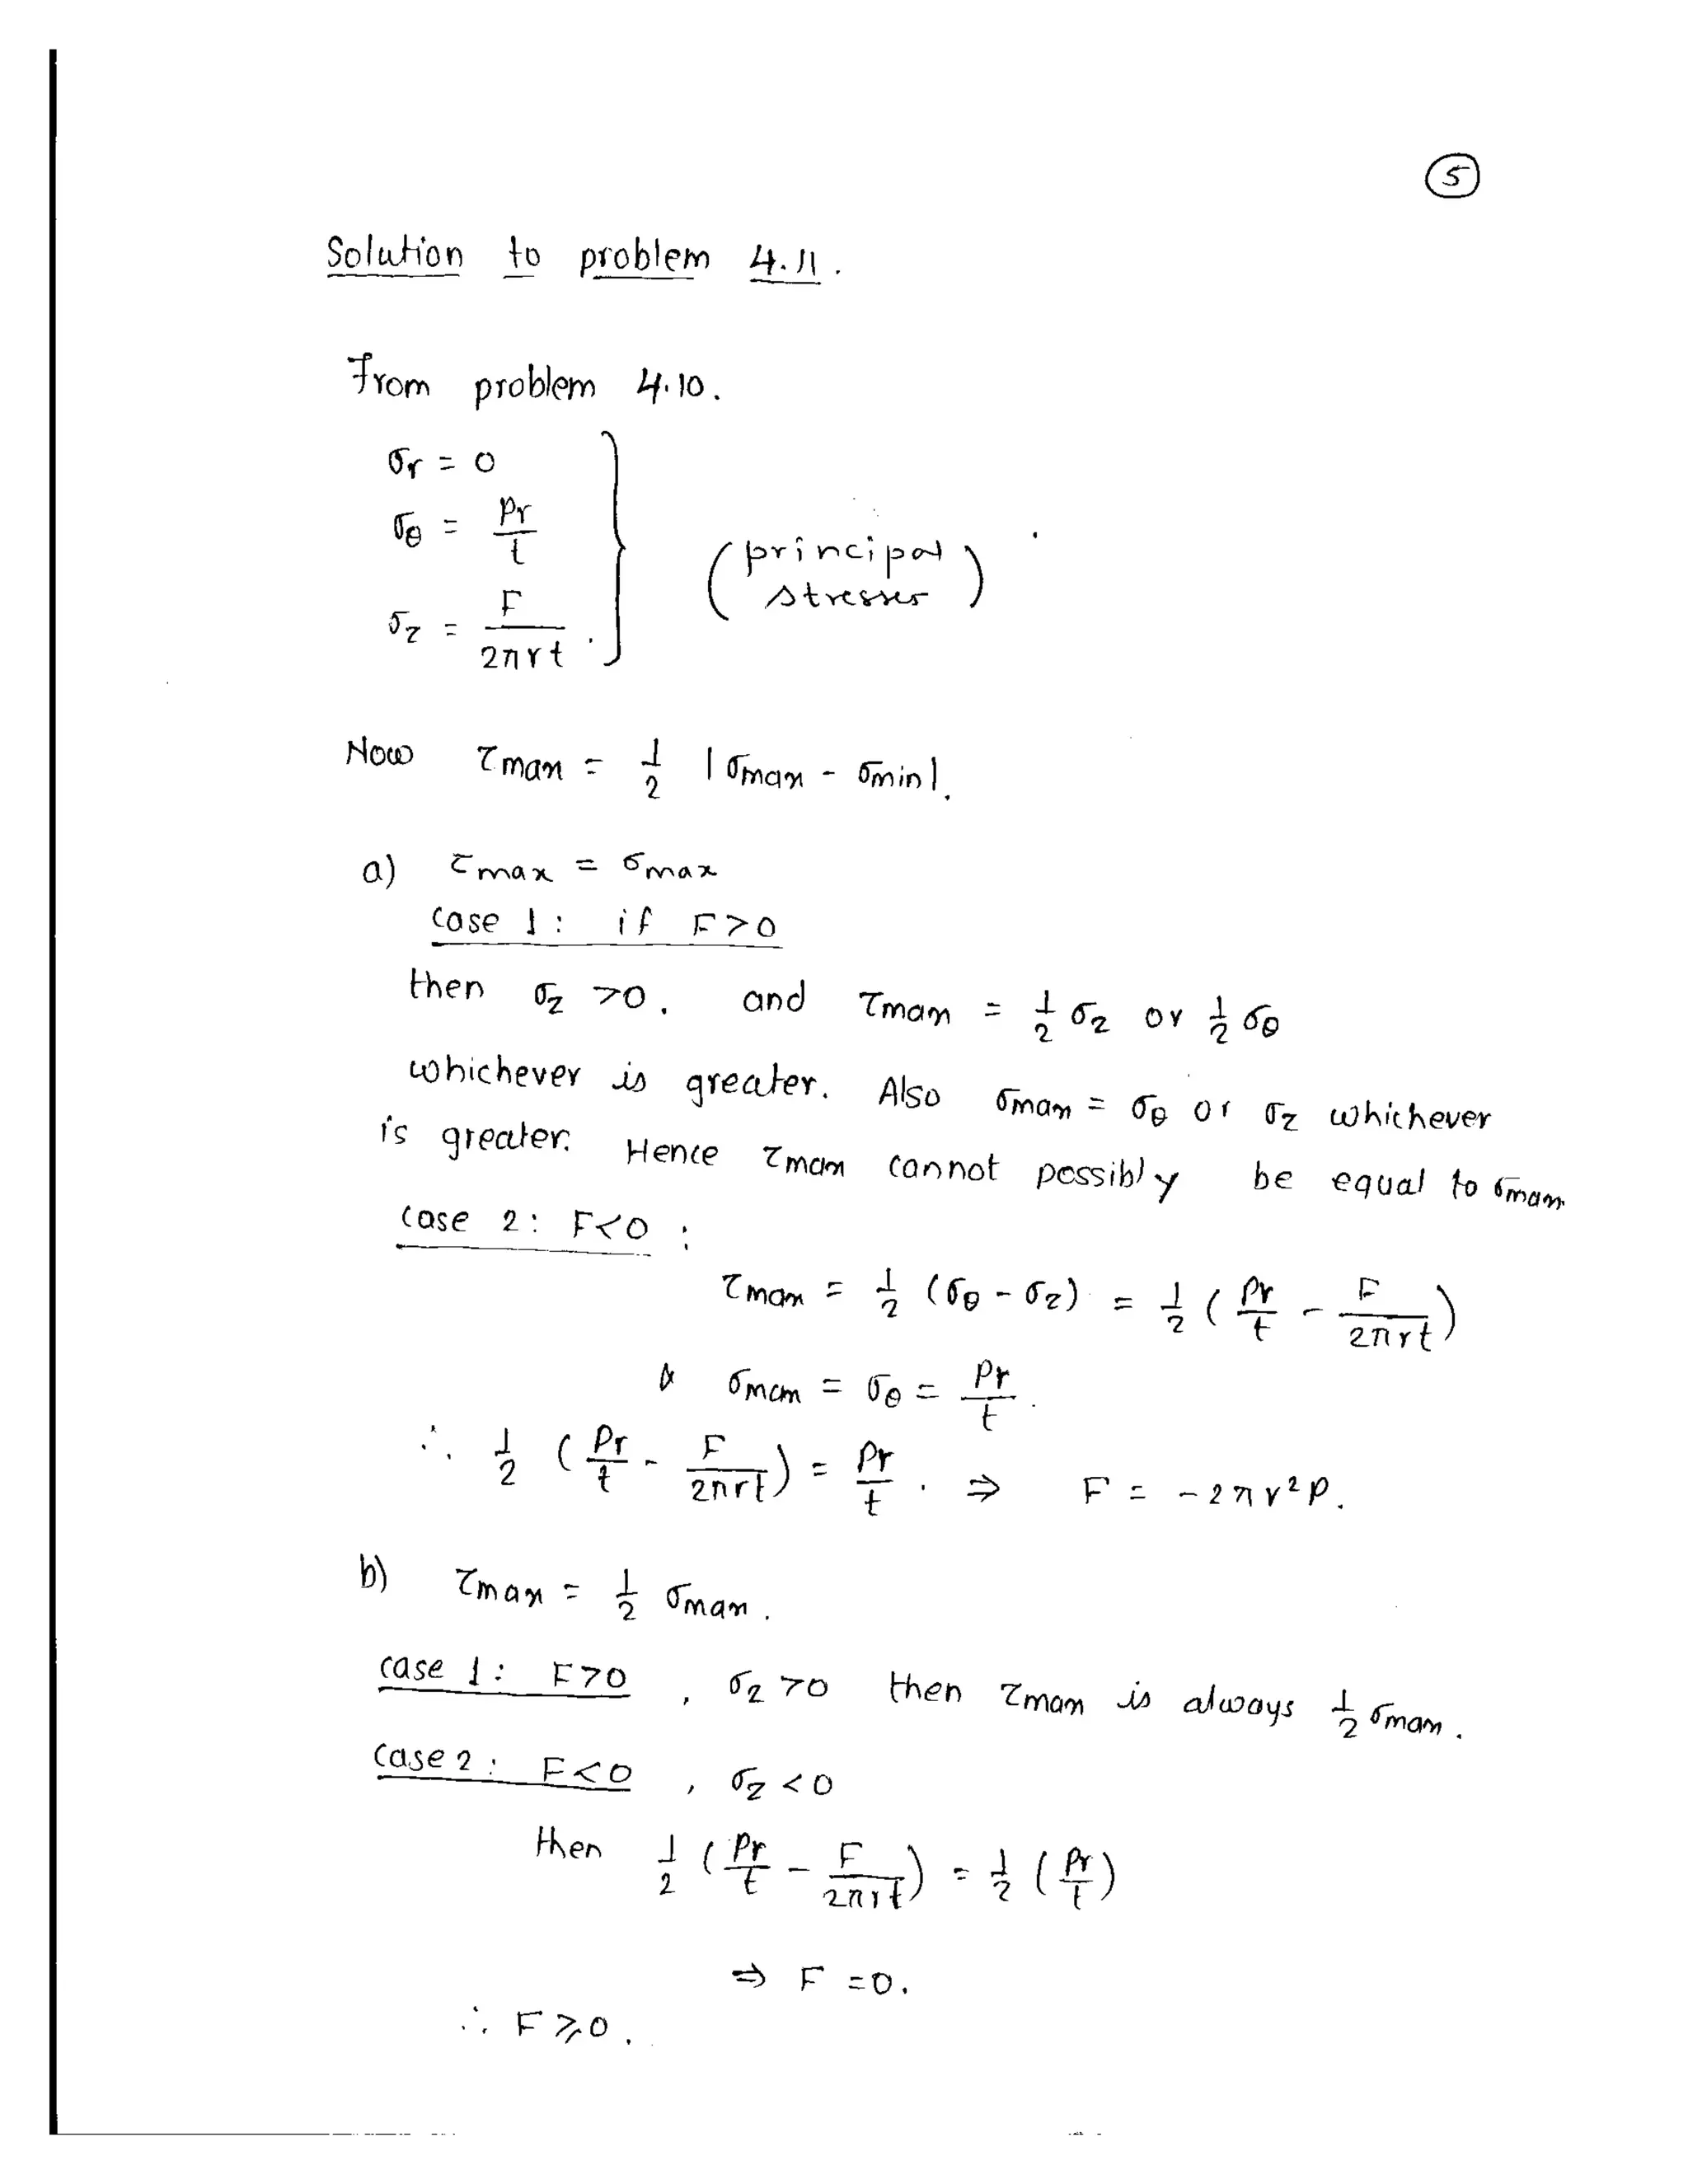 5
Solution to problem 4.11.
From problem 4.10.
σr = 0
σθ = Pr/t
σz = F/2πrt .
(principal stresses)
Now τmax = 1/2 |σmax - σmin|.
a) τmax = σmax
case 1: if F>0
then σz >0. and τmax = 1/2 σz or 1/2 σθ
whichever is greater. Also σmax = σθ or σz whichever
is greater. Hence τmax cannot possibly be equal to σmax
case 2: F<0 :
τmax = 1/2 (σθ - σz) = 1/2 (Pr/t - F/2πrt)
& σmax = σθ = Pr/t .
∴ 1/2 (Pr/t - F/2πrt) = Pr/t . ⇒ F = -2πr²P.
b) τmax = 1/2 σmax.
case 1: F>0 , σz >0 then τmax is always 1/2 σmax.
case 2: F<0 , σz <0
then 1/2 (Pr/t - F/2πrt) = 1/2 (Pr/t)
⇒ F =0.
∴ F⩾0.